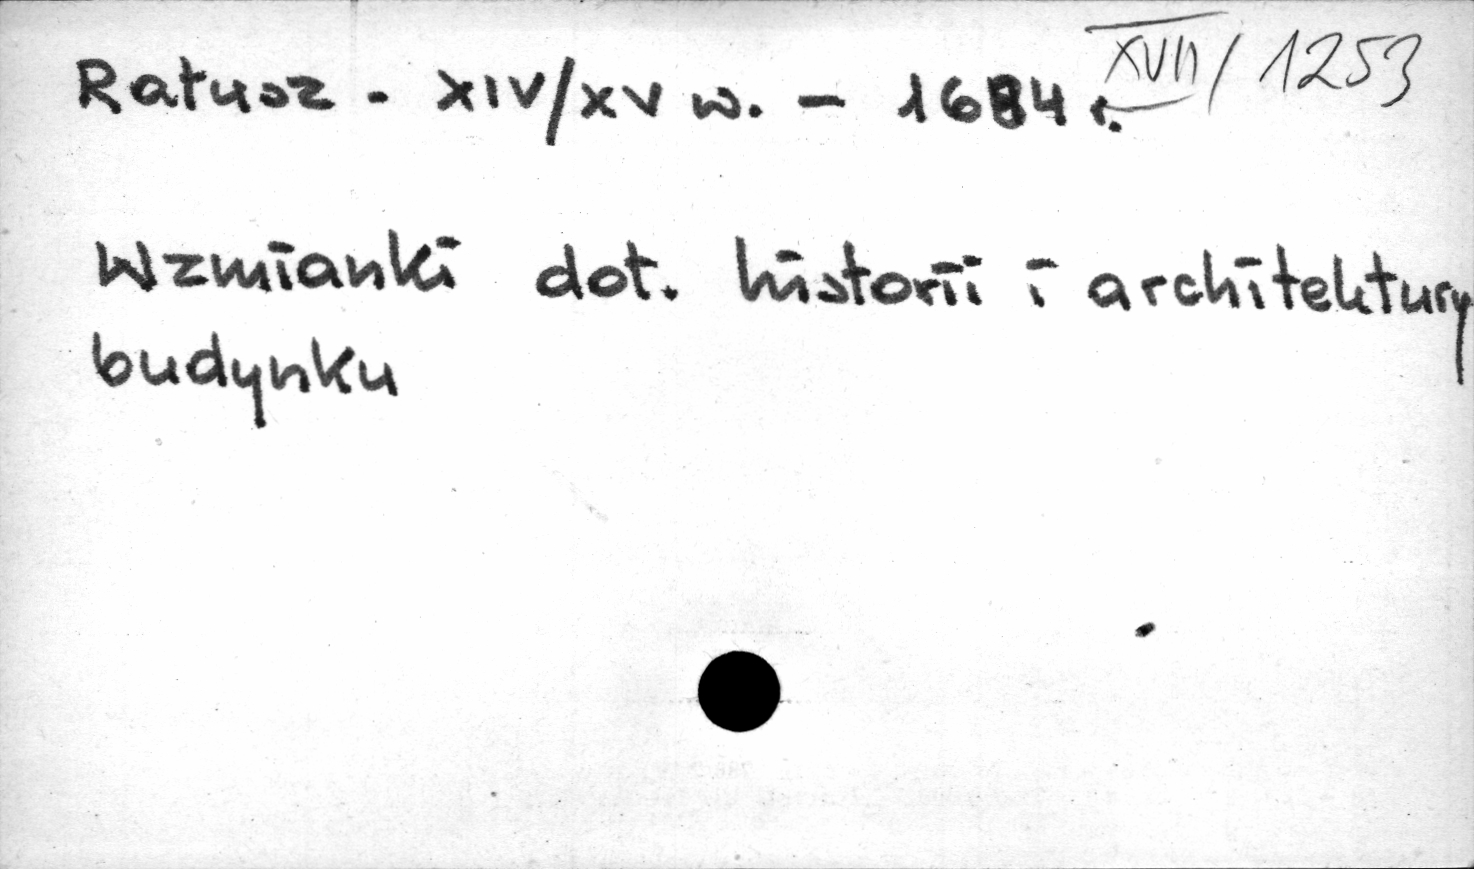 Ratusz - XIV/XV w. - 1684 r. XVII/1253
Wzmianki dot. historii i architektury
budynku